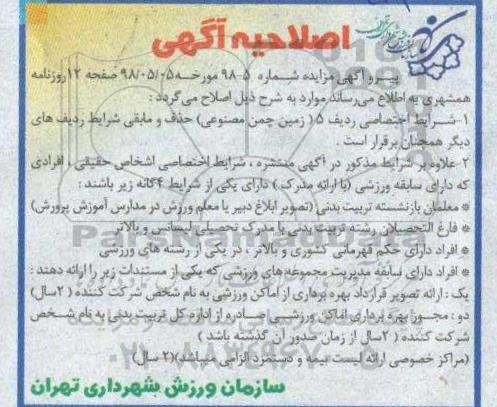 اصلاحیه آگهی
پیرو آگهی مزایده شماره ۵-۹۸ مورخه ۹۸/۰۵/۰۵ صفحه ۱۲ روزنامه
همشهری به اطلاع می‌رساند موارد به شرح ذیل اصلاح می‌گردد :
۱-شرایط اختصاصی ردیف ۵ ( زمین چمن مصنوعی) حذف و مابقی شرایط ردیف های
دیگر همچنان برقرار است .
۲ علاوه بر شرایط مذکور در آگهی منتشره ، شرایط اختصاصی اشخاص حقیقی ، افرادی
که دارای سابقه ورزشی (با ارائه مدرک ) دارای یکی از شرایط ۴گانه زیر باشند :
* معلمان بازنشسته تربیت بدنی (تصویر ابلاغ دبیر یا معلم ورزش در مدارس آموزش پرورش)
* فارغ التحصیلان رشته تربیت بدنی با مدرک تحصیلی لیسانس و بالاتر
* افراد دارای حکم قهرمانی کشوری و بالاتر ، در یکی از رشته های ورزشی
* افراد دارای سابقه مدیریت مجموعه های ورزشی که یکی از مستندات زیر را ارائه دهند :
یک : ارائه تصویر قرارداد بهره برداری از اماکن ورزشی به نام شخص شرکت کننده ( ۲سال)
دو : مجوز بهره برداری اماکن ورزشی صادره از اداره کل تربیت بدنی به نام شخص
شرکت کننده ( ۲سال از زمان صدور آن گذشته باشد )
(مراکز خصوصی ارائه لیست بیمه و دستمزد الزامی میباشد)(۲ سال)
سازمان ورزش شهرداری تهران
ParsNamadData